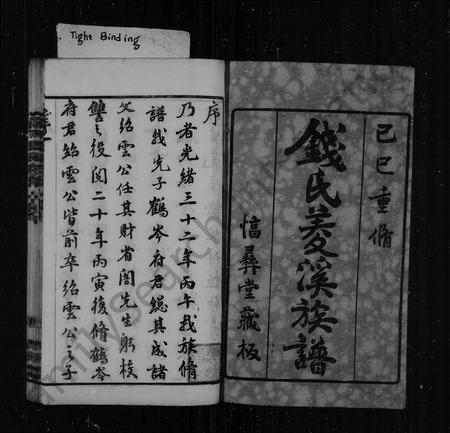 Tight Binding
己巳重脩
錢氏菱溪族譜
彞堂藏板
序
乃者光緒三十二年丙午我族脩
譜我先子鶴岑府君緦其成諸
父紹雲公任其財省閣先生躬校
讐之役閱二十年丙寅後脩鶴岑
府君紹雲公皆前卒紹雲公之子